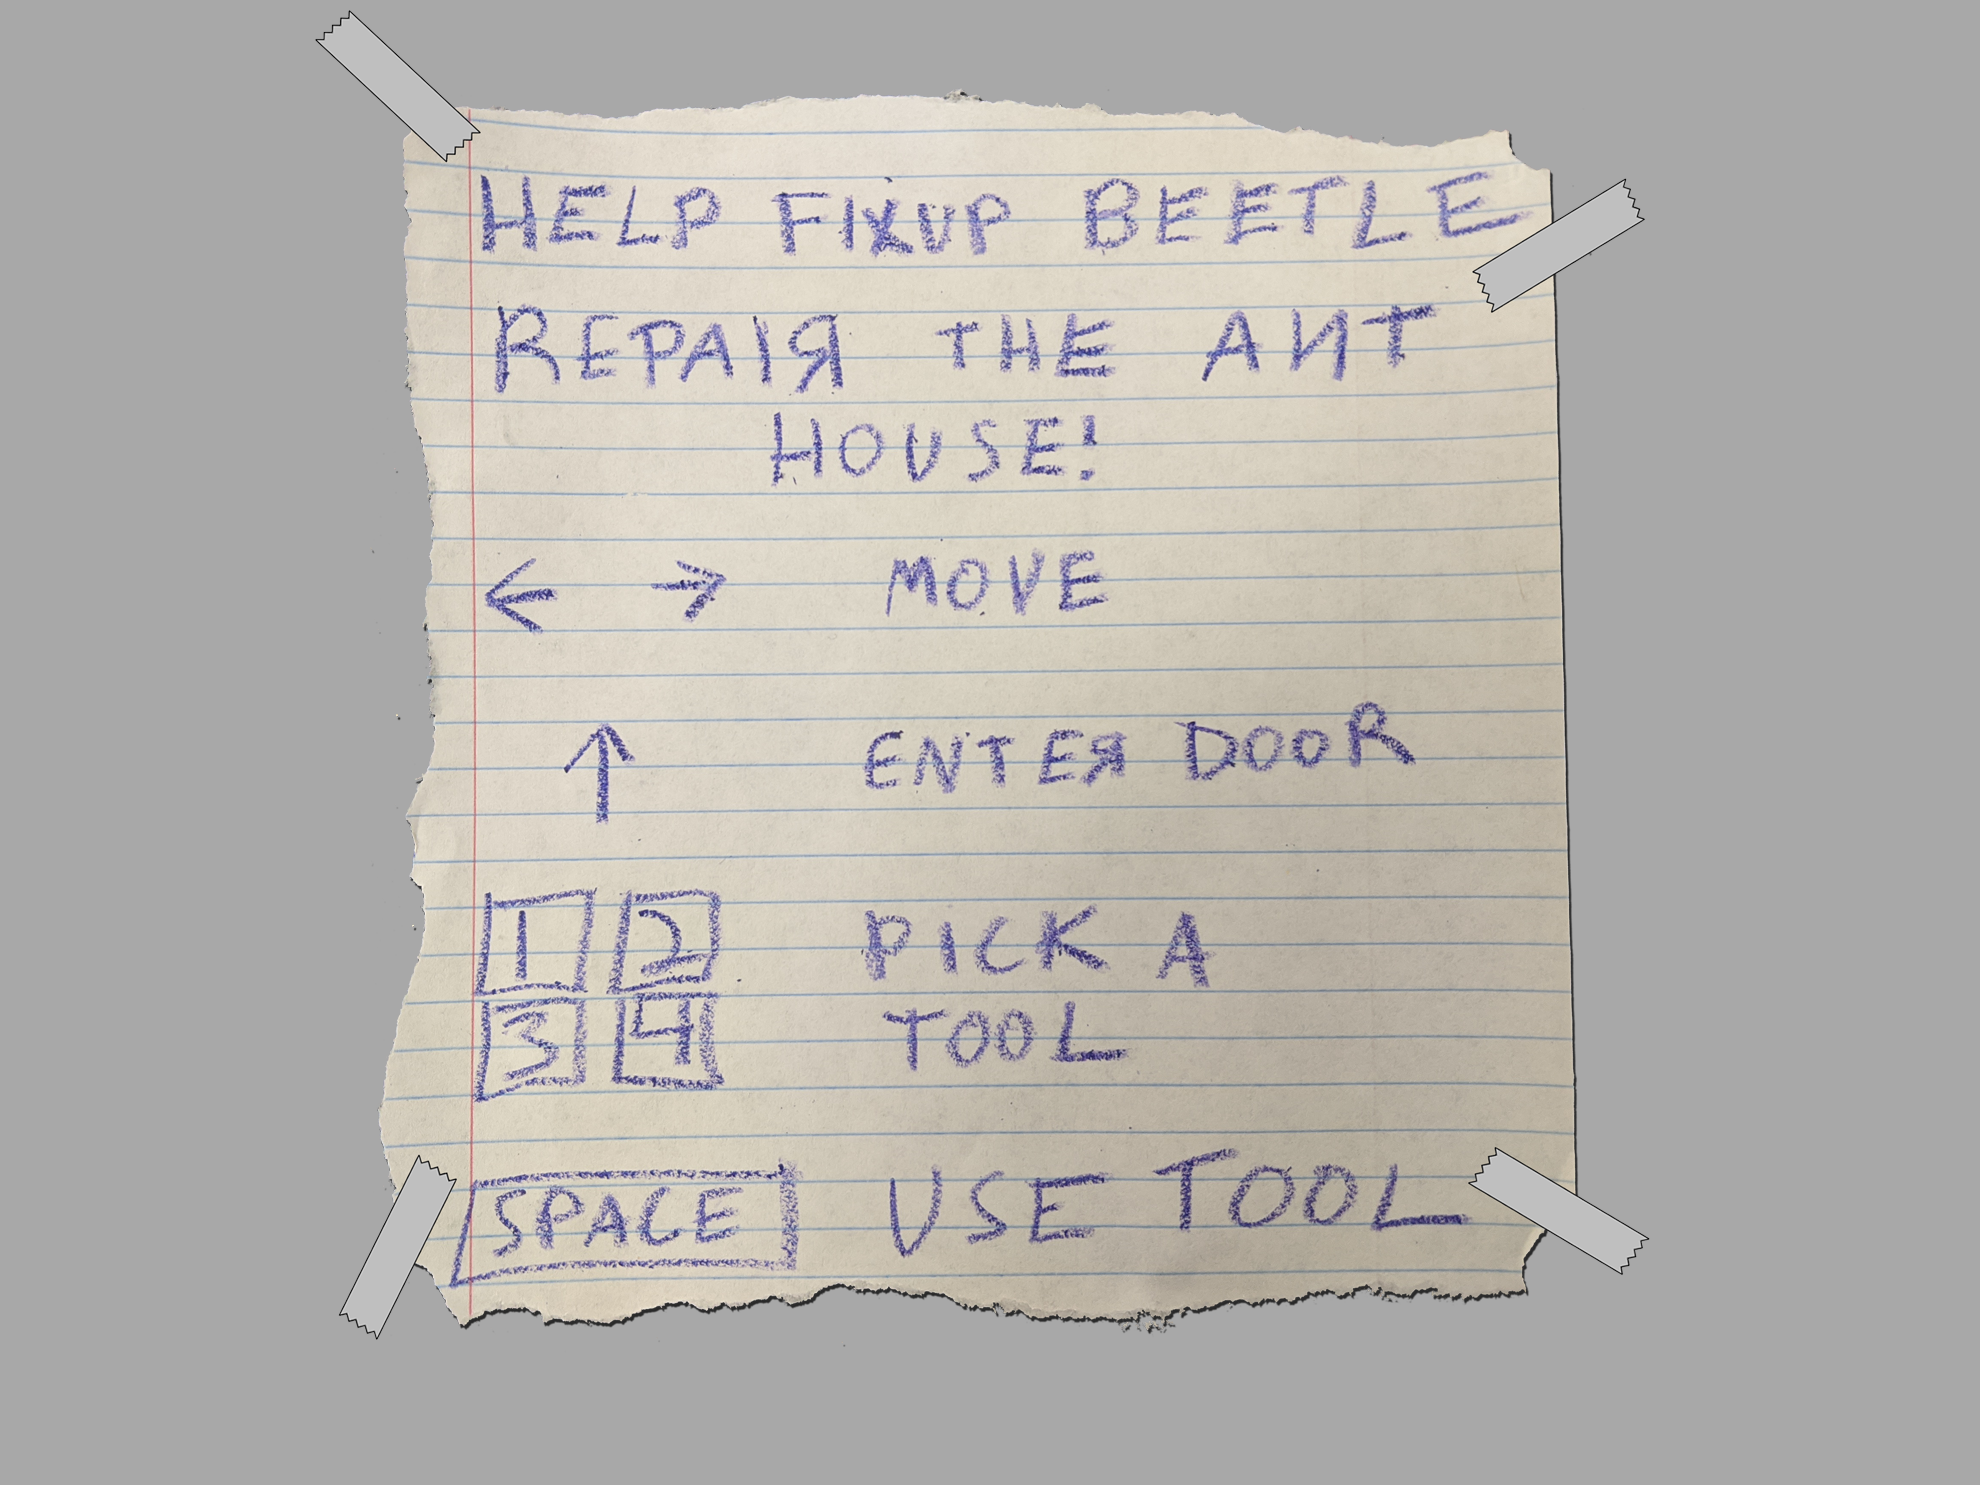 HELP FIXUP BEETLE
REPAIR THE ANT
HOUSE!
← → MOVE
↑ ENTER DOOR
1 2 PICK A
3 4 TOOL
SPACE USE TOOL